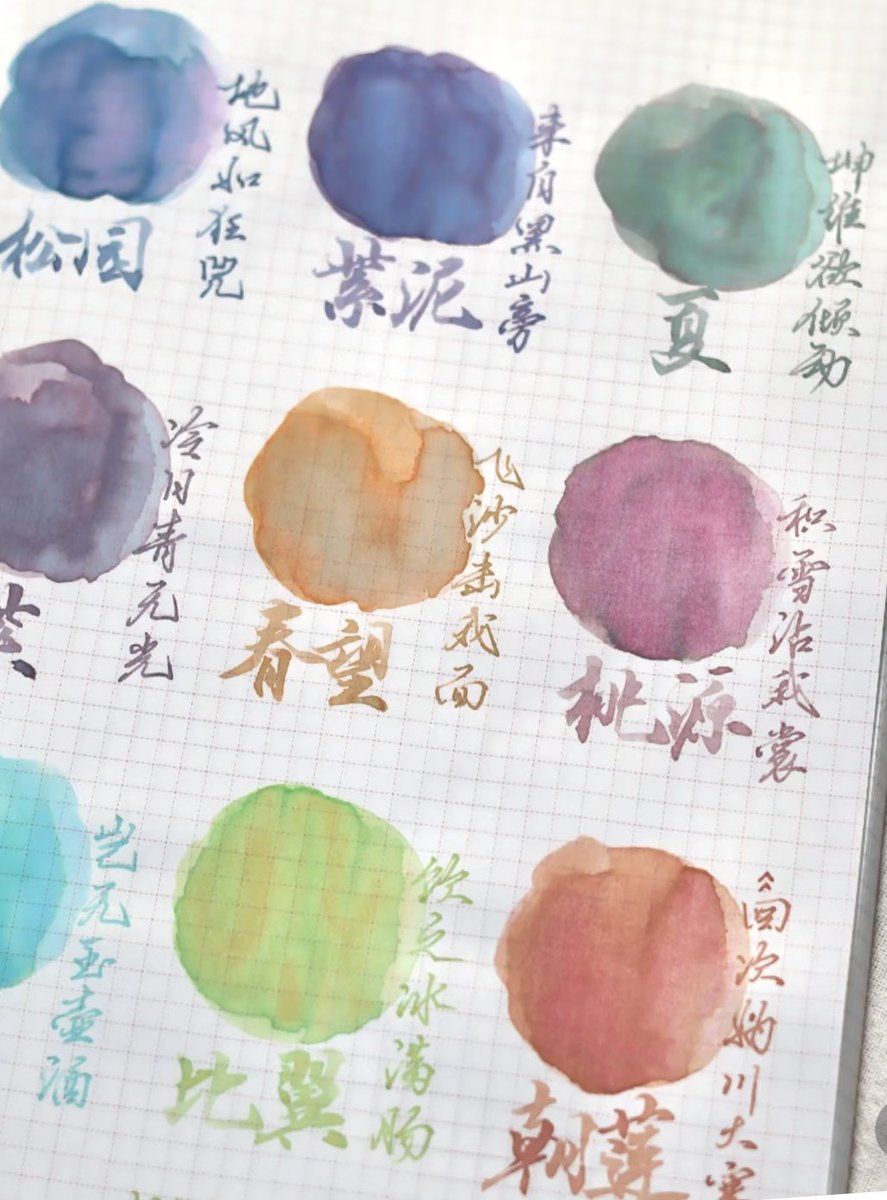 地风如狂兕
松园
来自黑山旁
紫泥
坤维欲倾动
夏
冷日青无光
飞沙击我面
春望
积雪沾我裳
桃源
岂无玉壶酒
饮之冰满肠
比翼
《回次妫川大寒
朝莲